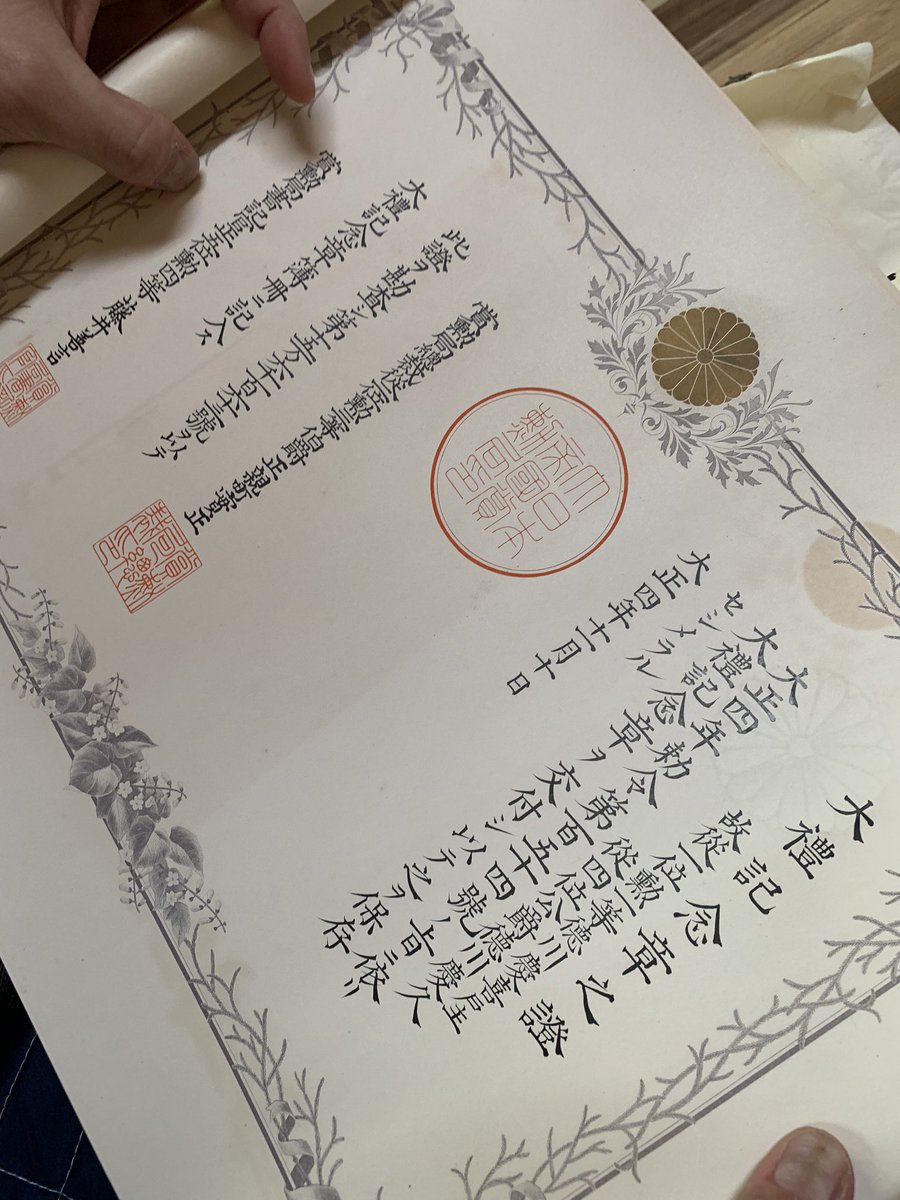 大禮記念章之證
故從一位勳一等德川慶喜戸主
從四位公爵德川慶久
大正四年勅令第百五十四號ノ旨ニ依リ
大禮記念章ヲ交付シ以テ之ヲ保存
セシメラル
大正四年十一月十日
大日本帝國賞勳局印
賞勳局總裁從二位勳一等伯爵正親町實正
此證ヲ勘査シ第 號ヲ以テ
大禮記念章簿冊ニ記入ス
賞勳局書記官正五位勳四等藤井善言